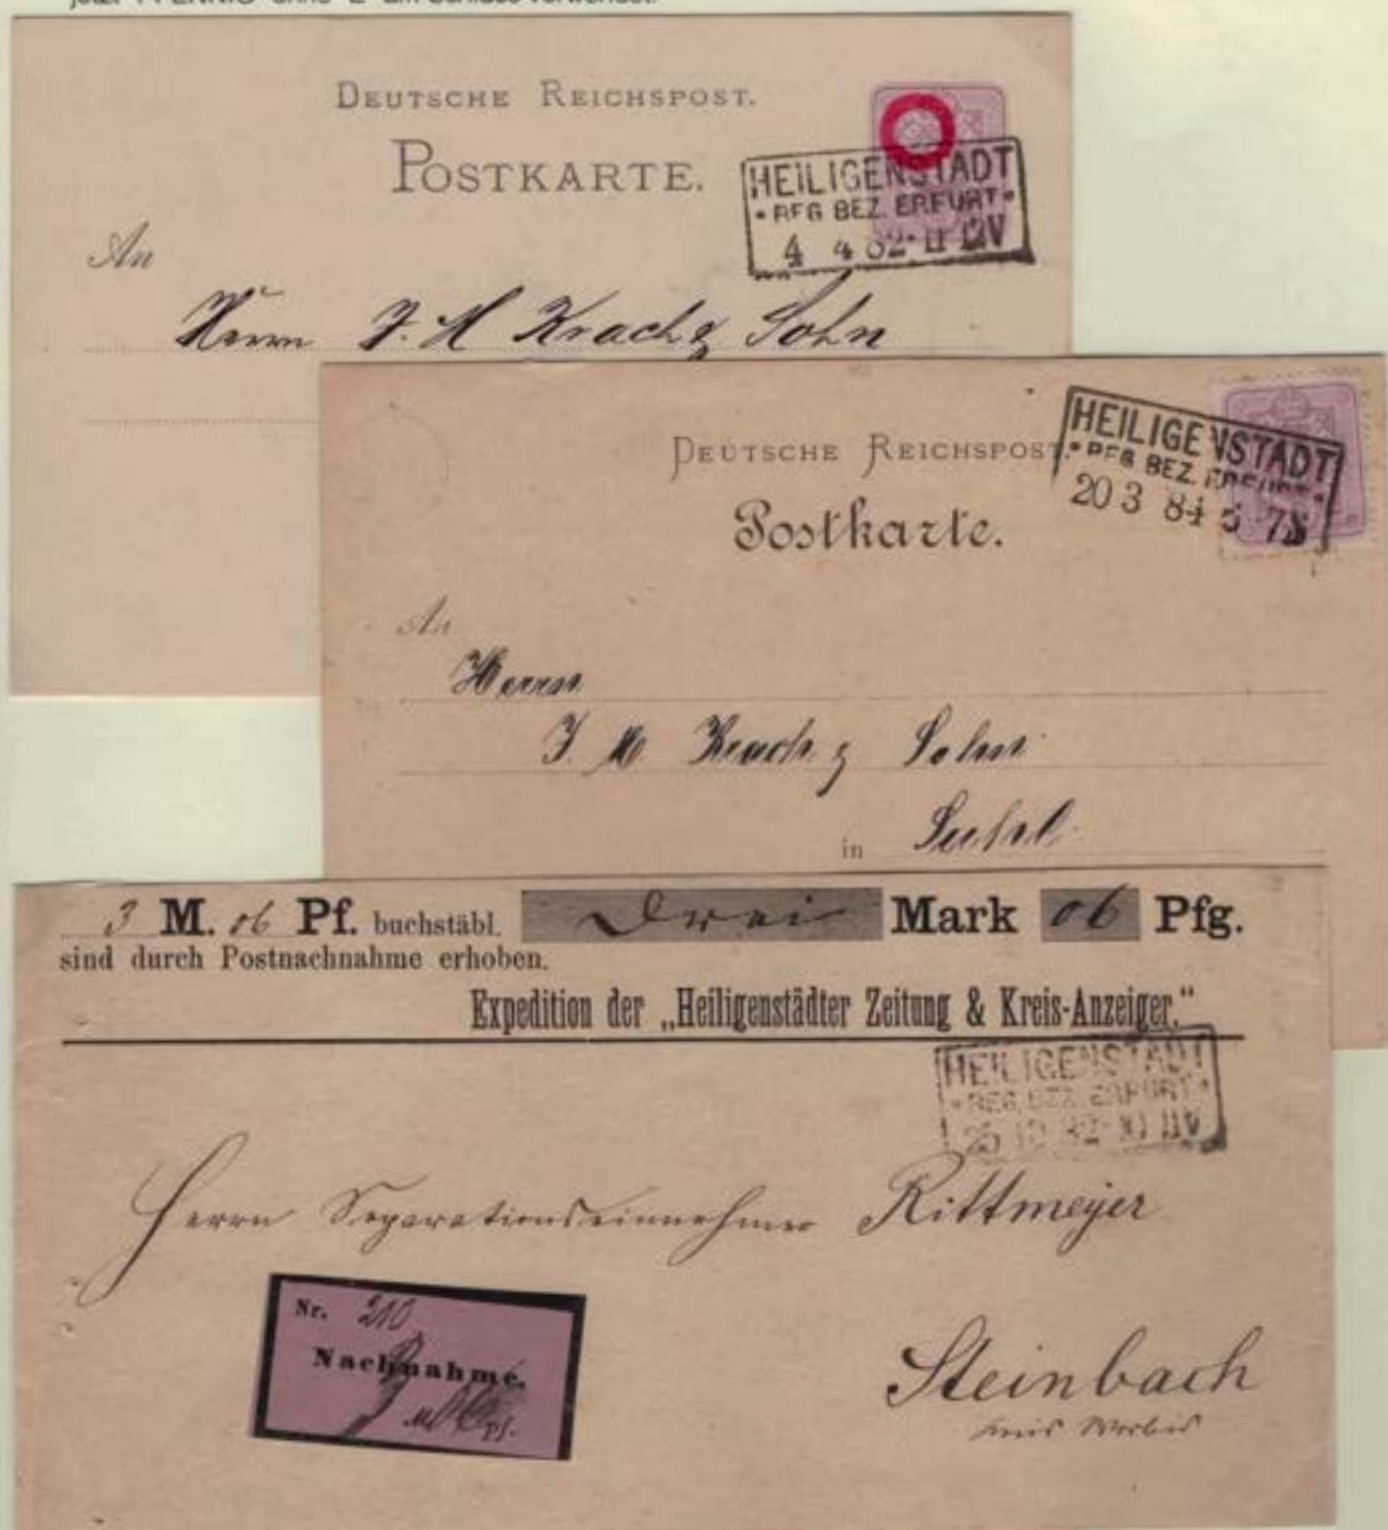 jetzt PFENNIG ohne "E" am Schluss verwendet.
DEUTSCHE REICHSPOST.
POSTKARTE.
HEILIGENSTADT
• REG BEZ. ERFURT •
4 4 82 • 11 12V
An
Herrn J. H Krach & Sohn
DEUTSCHE REICHSPOST.
Postkarte.
HEILIGENSTADT
• REG BEZ. ERFURT •
20 3 84 5 7N
An
Herrn
J M Krach & Sohn
in Suhl
3 M. 06 Pf. buchstäbl. Drei Mark 06 Pfg.
sind durch Postnachnahme erhoben.
Expedition der „Heiligenstädter Zeitung & Kreis-Anzeiger.“
HEILIGENSTADT
• REG. BEZ. ERFURT •
25 10 82 • XI 11V
Herrn Separationseinnehmer Rittmeyer
Nr. 210
Nachnahme.
M. Pf.
Steinbach
Kreis Worbis